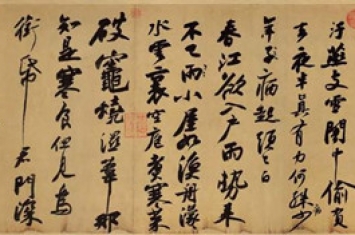 汙燕支雪闇中偷負
去夜半真有力何殊少
年子病起頭已白
春江欲入戶雨勢來
不已雨小屋如漁舟濛
水雲裏空庖煮寒菜
破竈燒濕葦那
知是寒食但見烏
銜帋君門深